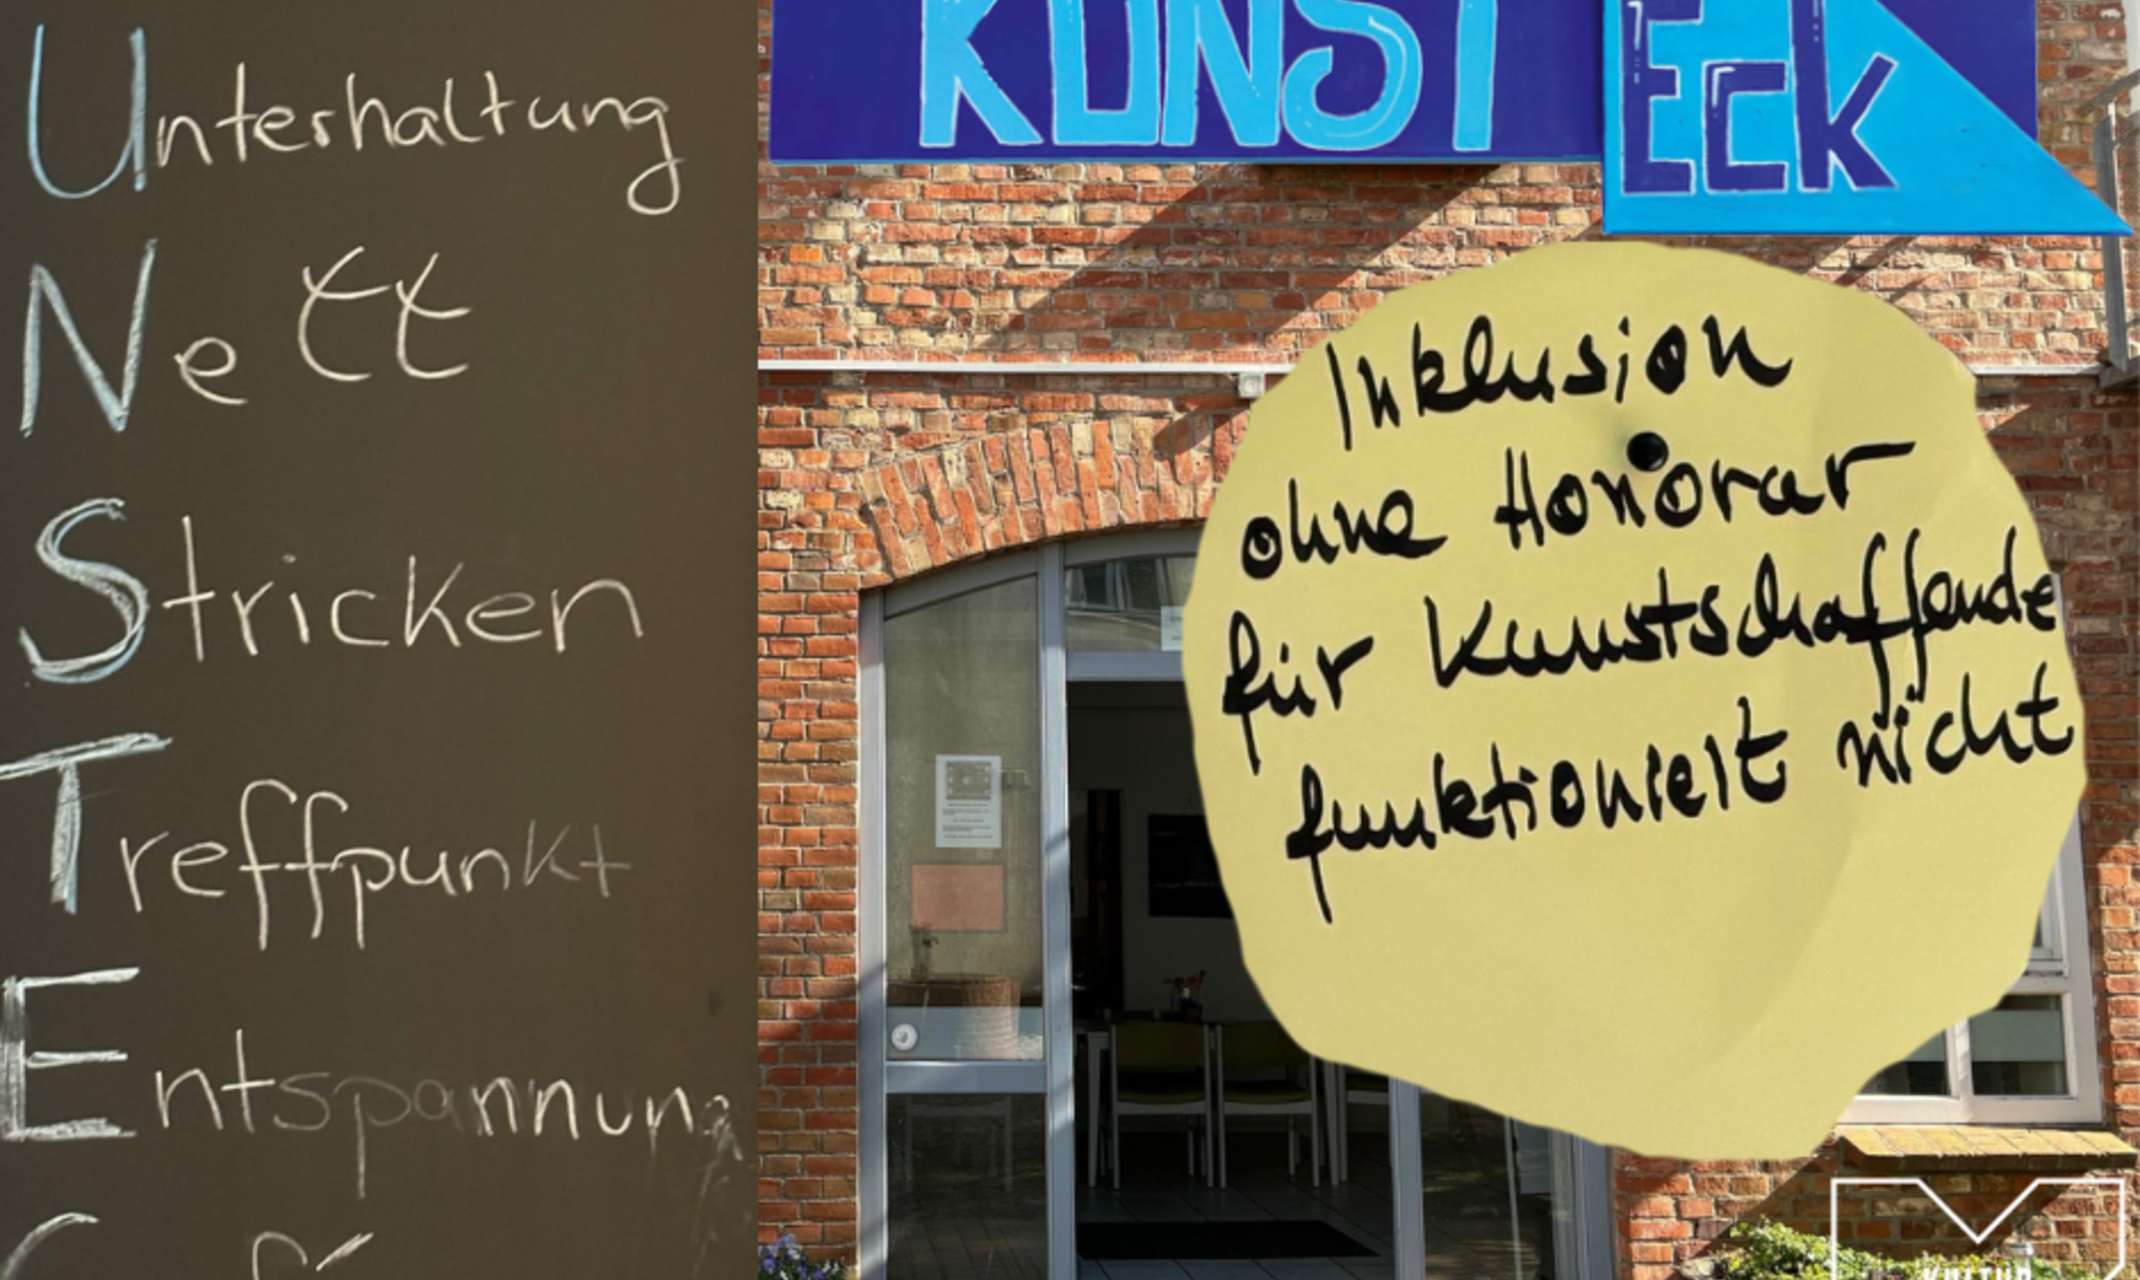 Unterhaltung
Nett
Stricken
Treffpunkt
Entspannung
KUNST
ECK
Inklusion
ohne Honorar
für Kunstschaffende
funktioniert nicht